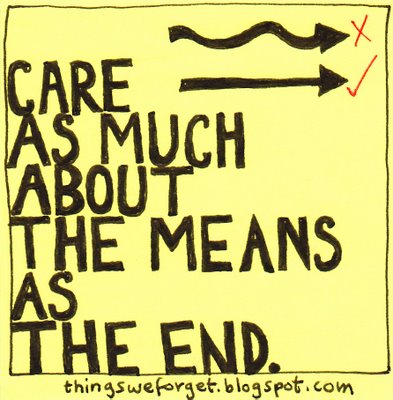 CARE
AS MUCH
ABOUT
THE MEANS
AS
THE END.
thingsweforget.blogspot.com